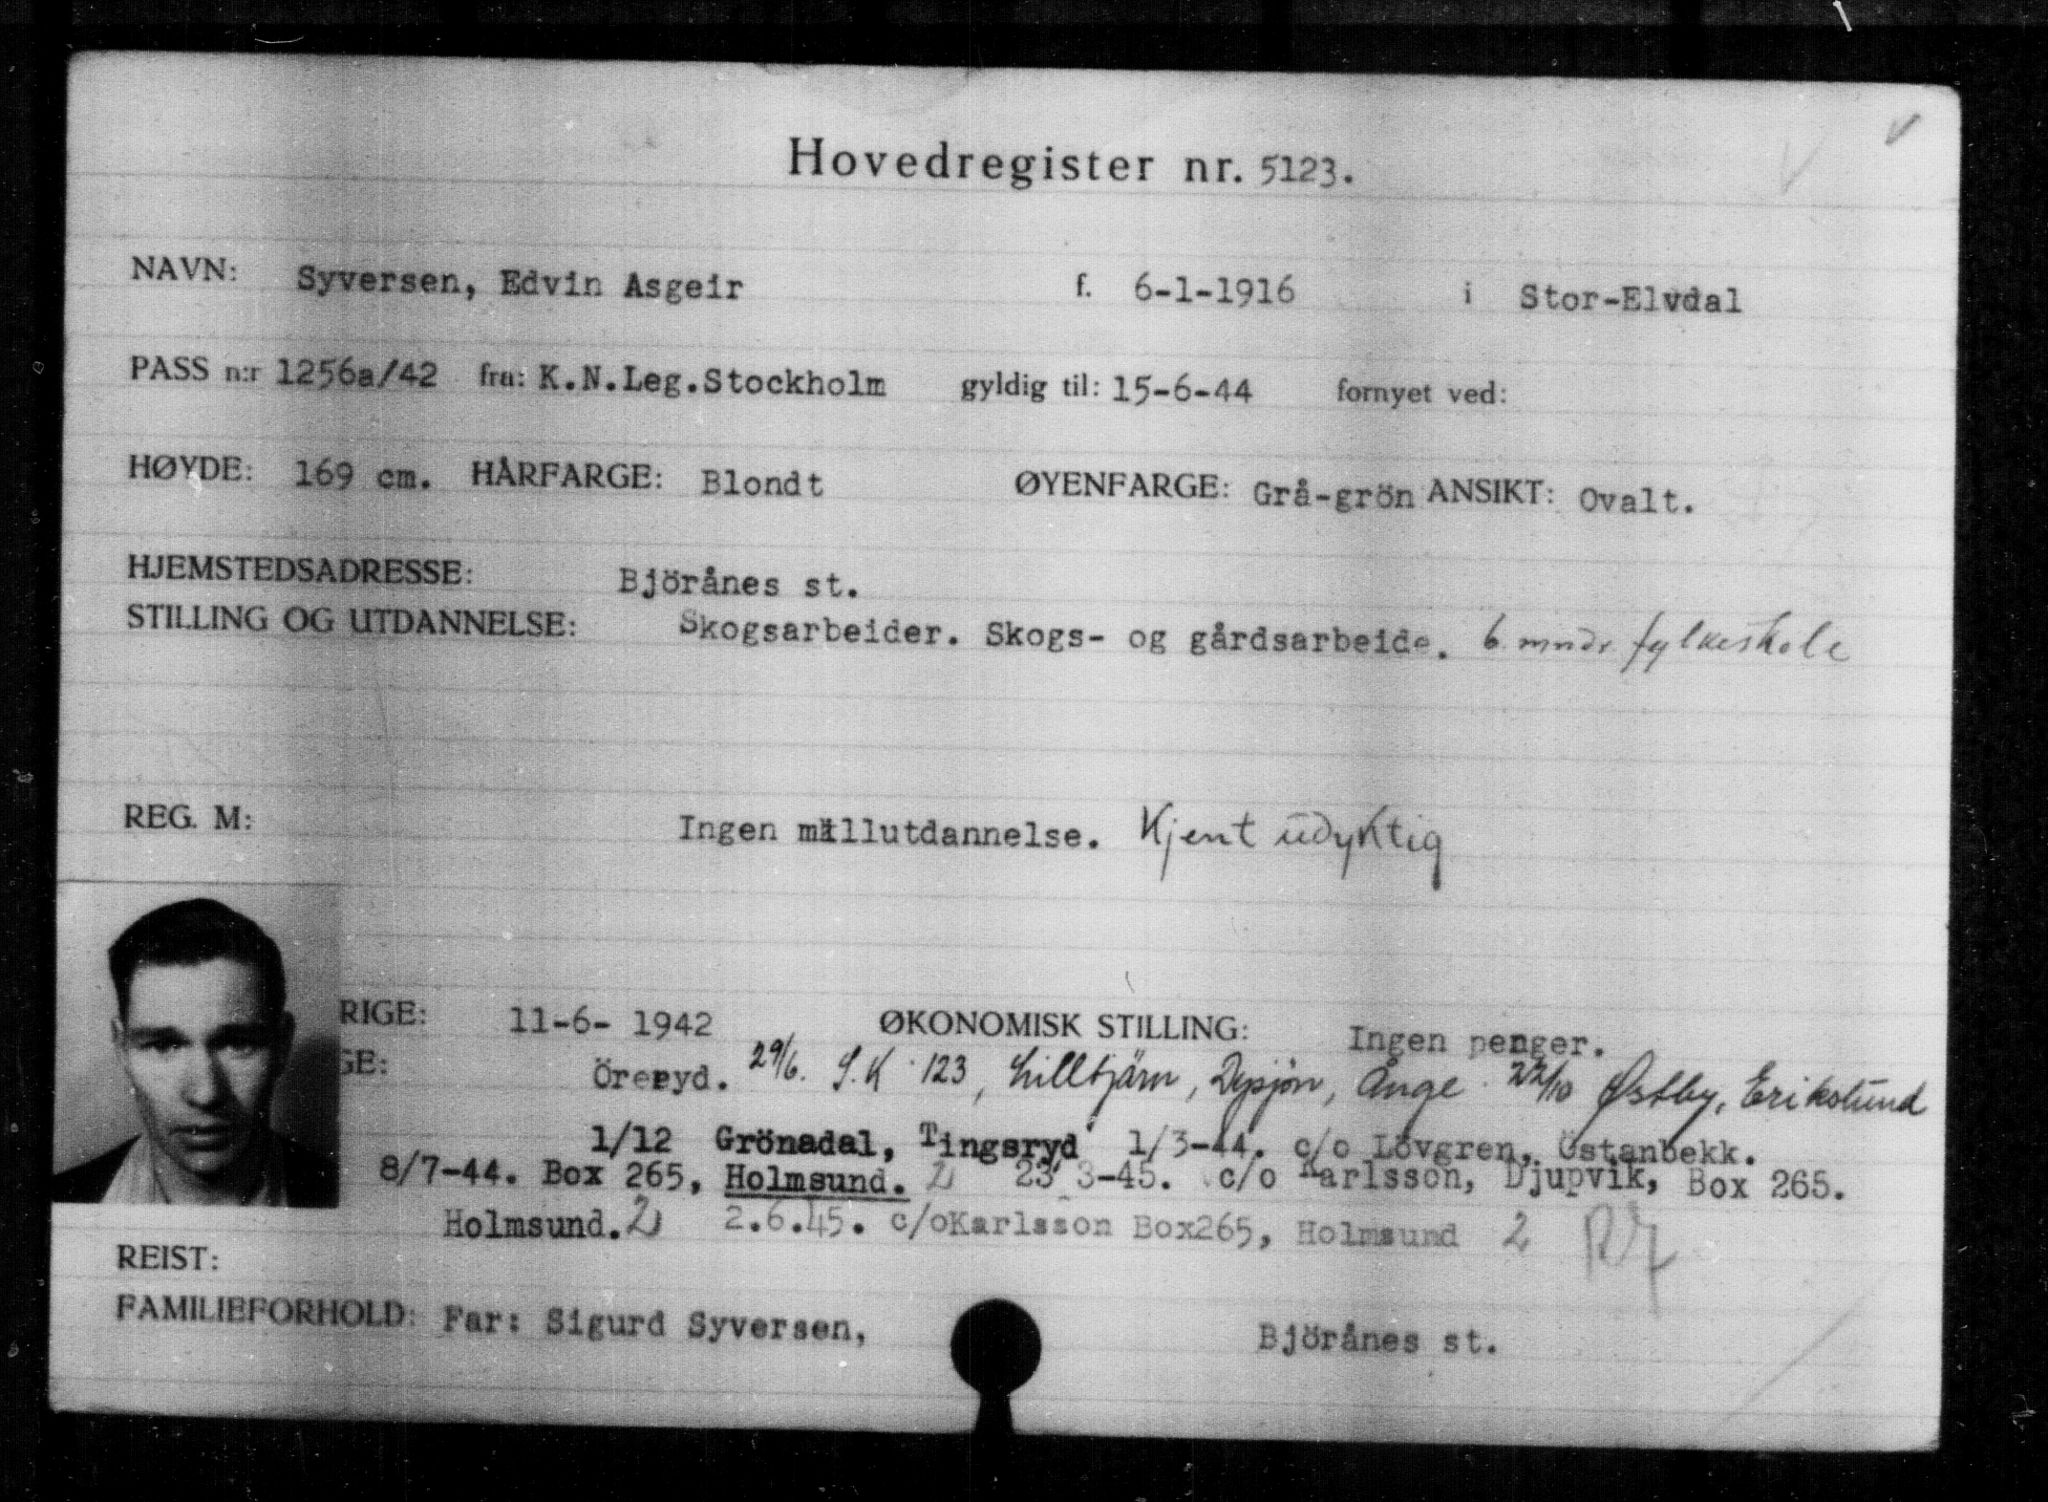 Hovedregister nr. 5123.
NAVN: Syversen, Edvin Asgeir f. 6-1-1916 i Stor-Elvdal
PASS n:r 1256a/42 fra: K.N.Leg.Stockholm gyldig til: 15-6-44 fornyet ved:
HØYDE: 169 cm. HÅRFARGE: Blondt ØYENFARGE: Grå-grön ANSIKT: Ovalt.
HJEMSTEDSADRESSE: Björånes st.
STILLING OG UTDANNELSE: Skogsarbeider. Skogs- og gårdsarbeide. 6 mndr. fylkeskole
REG. M: Ingen millutdannelse. Kjent udyktig
RIGE: 11-6- 1942 ØKONOMISK STILLING: Ingen penger.
GE: Öreryd. 29/6. S.K 123, Lilltjärn, Dysjön, Ånge. 22/10 Østby, Erikslund
1/12 Grönadal, Tingsryd 1/3-44. c/o Lövgren, Östanbekk.
8/7-44. Box 265, Holmsund. 2 23 3-45. c/o Karlsson, Djupvik, Box 265.
Holmsund. 2 2.6.45. c/oKarlsson Box265, Holmsund 2
REIST:
FAMILIEFORHOLD: Far: Sigurd Syversen, Björånes st.